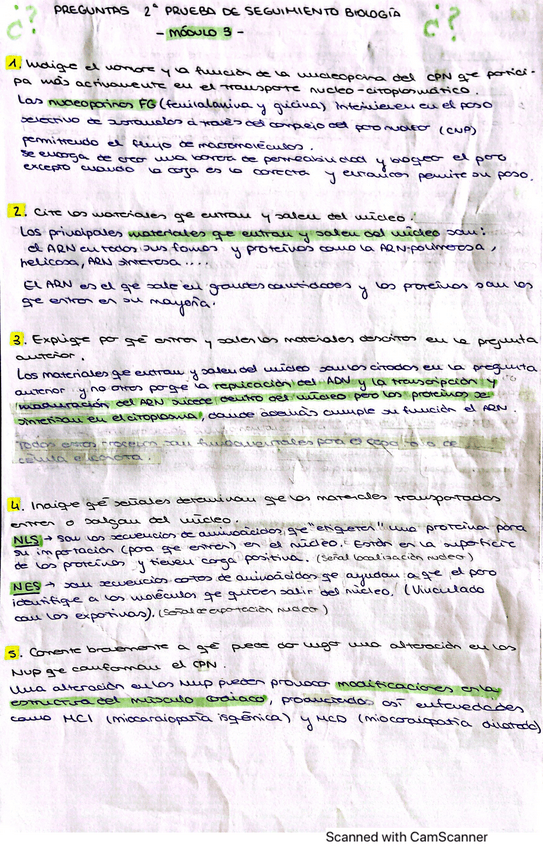 PREGUNTAS 2ª PRUEBA DE SEGUIMIENTO BIOLOGÍA
- MÓDULO 3 -
¿?
¿?
1. Indique el nombre y la función de la nucleoporina del CPN qe partici-
pa más activamente en el transporte nucleo-citoplasmático.
Las nucleoporinas FG (fenilalanina y glicina) intervienen en el paso
selectivo de sustancias a través del complejo del poro nuclear (CNP)
permitiendo el flujo de macromoléculas.
Se encarga de crear una barrera de permeabilidad y bloqear el poro
excepto cuando la carga es la correcta y entonces permite su paso.
2. Cite los materiales qe entran y salen del núcleo.
Los principales materiales qe entran y salen del núcleo son:
el ARN en todas sus formas y proteínas como la ARN-polimerasa,
helicasa, ARN sintetasa ....
El ARN es el qe sale en grandes cantidades y las proteínas son las
qe entran en su mayoría.
3. Expliqe por qé entran y salen los materiales descritos en la pregunta
anterior.
Los materiales qe entran y salen del núcleo son los citados en la pregunta
anterior y no otros porqe la replicación del ADN y la transcripción y
maduración del ARN sucede dentro del núcleo pero las proteínas se
sintetizan en el citoplasma, donde además cumple su función el ARN.
Todos estos procesos son fundamentales para el
célula eucariota.
4. Indiqe qé señales determinan qe los materiales transportados
entren o salgan del núcleo.
NLS → son las secuencias de aminoácidos qe "etiqetan" una proteína para
su importación (para qe entren) en el núcleo. Están en la superficie
de las proteínas y tienen carga positiva. (Señal localización nuclear)
NES → son secuencias cortas de aminoácidos qe ayudan a qe el poro
identifiqe a las moléculas qe quieren salir del núcleo. (Vinculado
con las exportinas). (Señal de exportación nuclear)
5. Comente brevemente a qé puede dar lugar una alteración en las
Nup qe conforman el CPN.
Una alteración en las Nup pueden provocar modificaciones en la
estructura del músculo cardiaco, produciendo así enfermedades
como MCI (miocardiopatía isqénica) y MCD (miocardiopatía dilatada)
Scanned with CamScanner